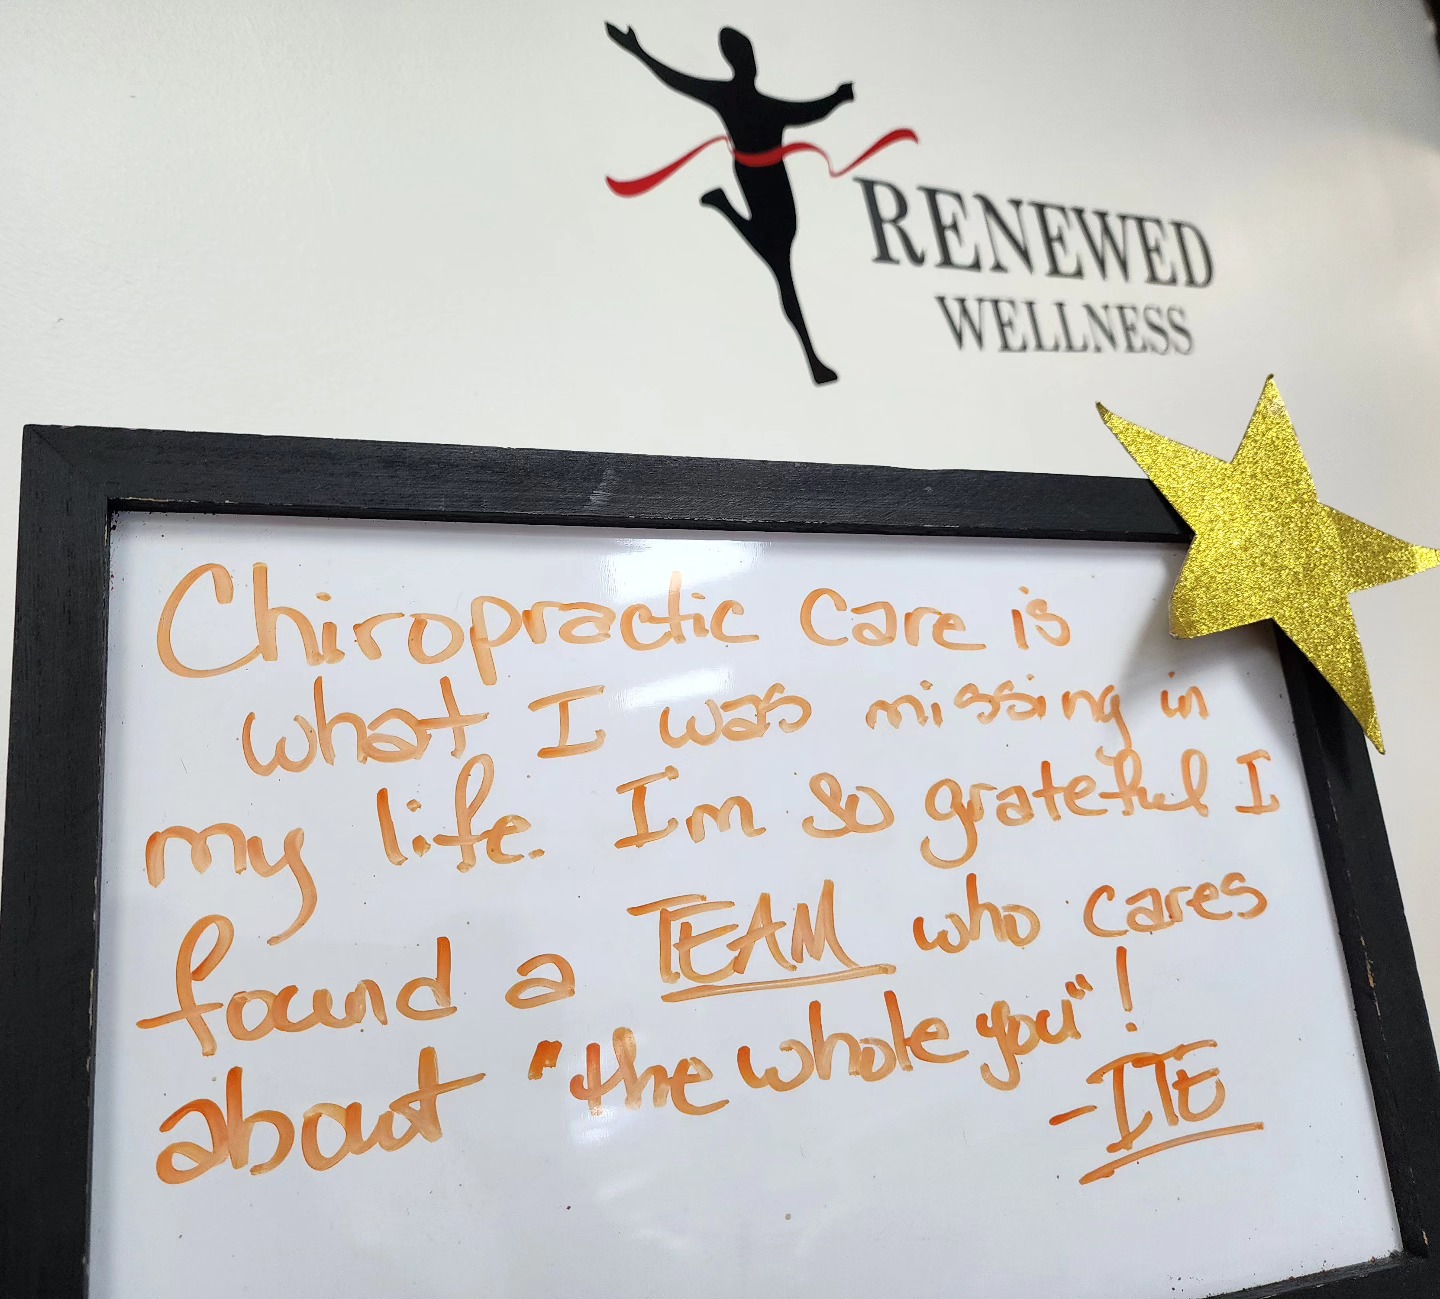 RENEWED
WELLNESS
Chiropractic care is
what I was missing in
my life. I'm so grateful I
found a TEAM who cares
about "the whole you"!
-ITE